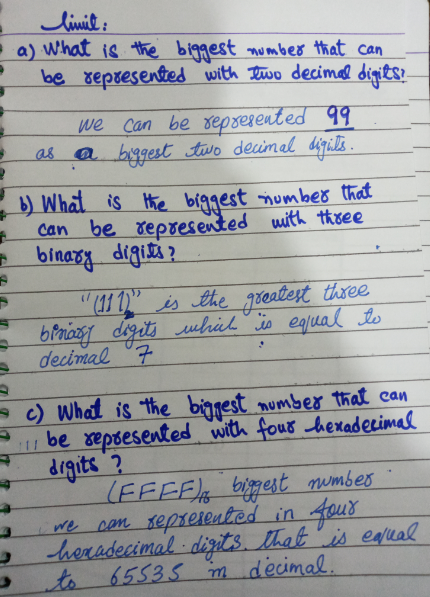 limit:
a) What is the biggest number that can
be represented with two decimal digits?
We can be represented 99
as a biggest two decimal digits.
b) What is the biggest number that
can be represented with three
binary digits?
"(111)₂" is the greatest three
binary digits which is equal to
decimal 7
c) What is the biggest number that can
be represented with four hexadecimal
digits ?
(FFFF)₁₆ biggest number
we can represented in four
hexadecimal digits. that is equal
to 65535 in decimal.